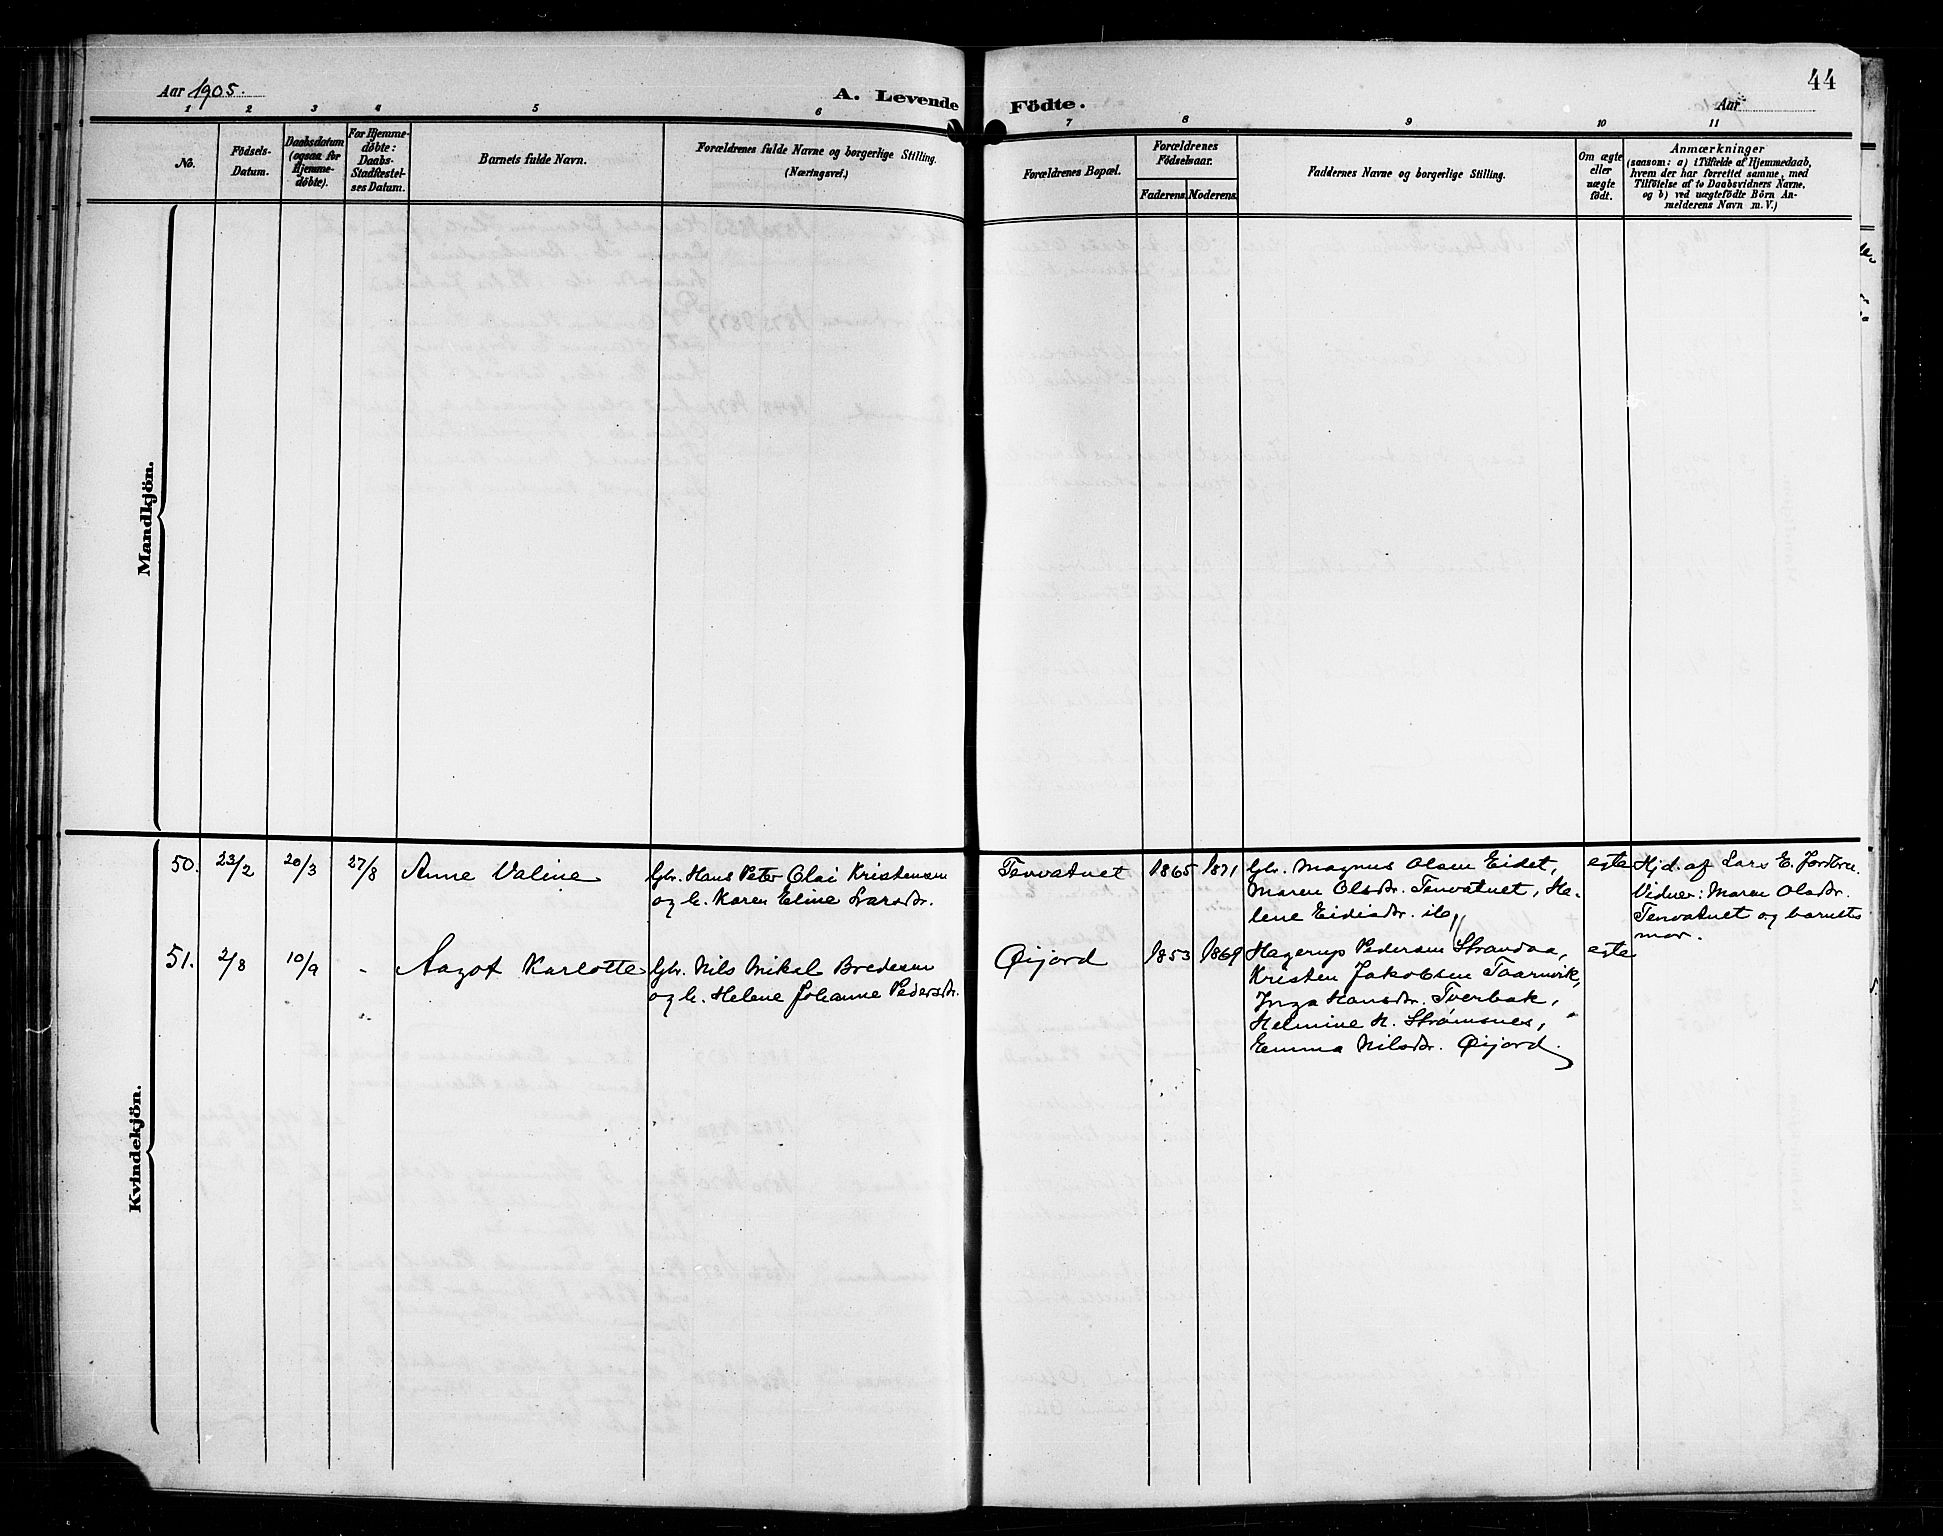 44
Aar 1905.
A. Levende Födte.
Aar
1 2 3 4 5 6 7 8 9 10 11
No.
Födsels-
Datum.
Daabsdatum
(ogsaa for
Hjemme-
döbte).
For Hjemme-
döbte:
Daabs-
Stadfæstel-
ses Datum.
Barnets fulde Navn.
Forældrenes fulde Navne og borgerlige Stilling.
(Næringsvei.)
Forældrenes Bopæl.
Forældrenes
Födselsaar.
Faderens. Moderens.
Faddernes Navne og borgerlige Stilling.
Om ægte
eller
uægte
födt.
Anmærkninger
(saasom: a) i Tilfælde af Hjemmedaab,
hvem der har forrettet samme, med
Tilföielse af to Daabsvidners Navne,
og b) ved uægtefödte Börn An-
melderens Navn m. V.)
Mandkjön.
Kvindekjön.
50. 23/2 20/3 27/8 Anne Valine
Gbr. Hans Peter Olai Kristensen
og h. Karen Eline Larsdr.
Tenvatnet 1865 1871
Gbr. Magnus Olsen Eidet,
Maren Olsdr. Tenvatnet, He-
lene Eidisdr. ib.
egte
Hjd. af Lars E.
Vidner: Maren Olsdr.
Tenvatnet og barnets
mor.
51. 2/8 10/9 - Aagot Karlotte
Gbr. Nils Mikal Bredesen
og h. Helene Johanne Pedersdr.
Øijord 1853 1869
Hagerup Pedersen Strandaa,
Kristen Jakobsen Taarnvik,
Inga Hansdr. Tverbak,
Helmine H. Strømsnes,
Emma Nilsdr. Øijord.
egte